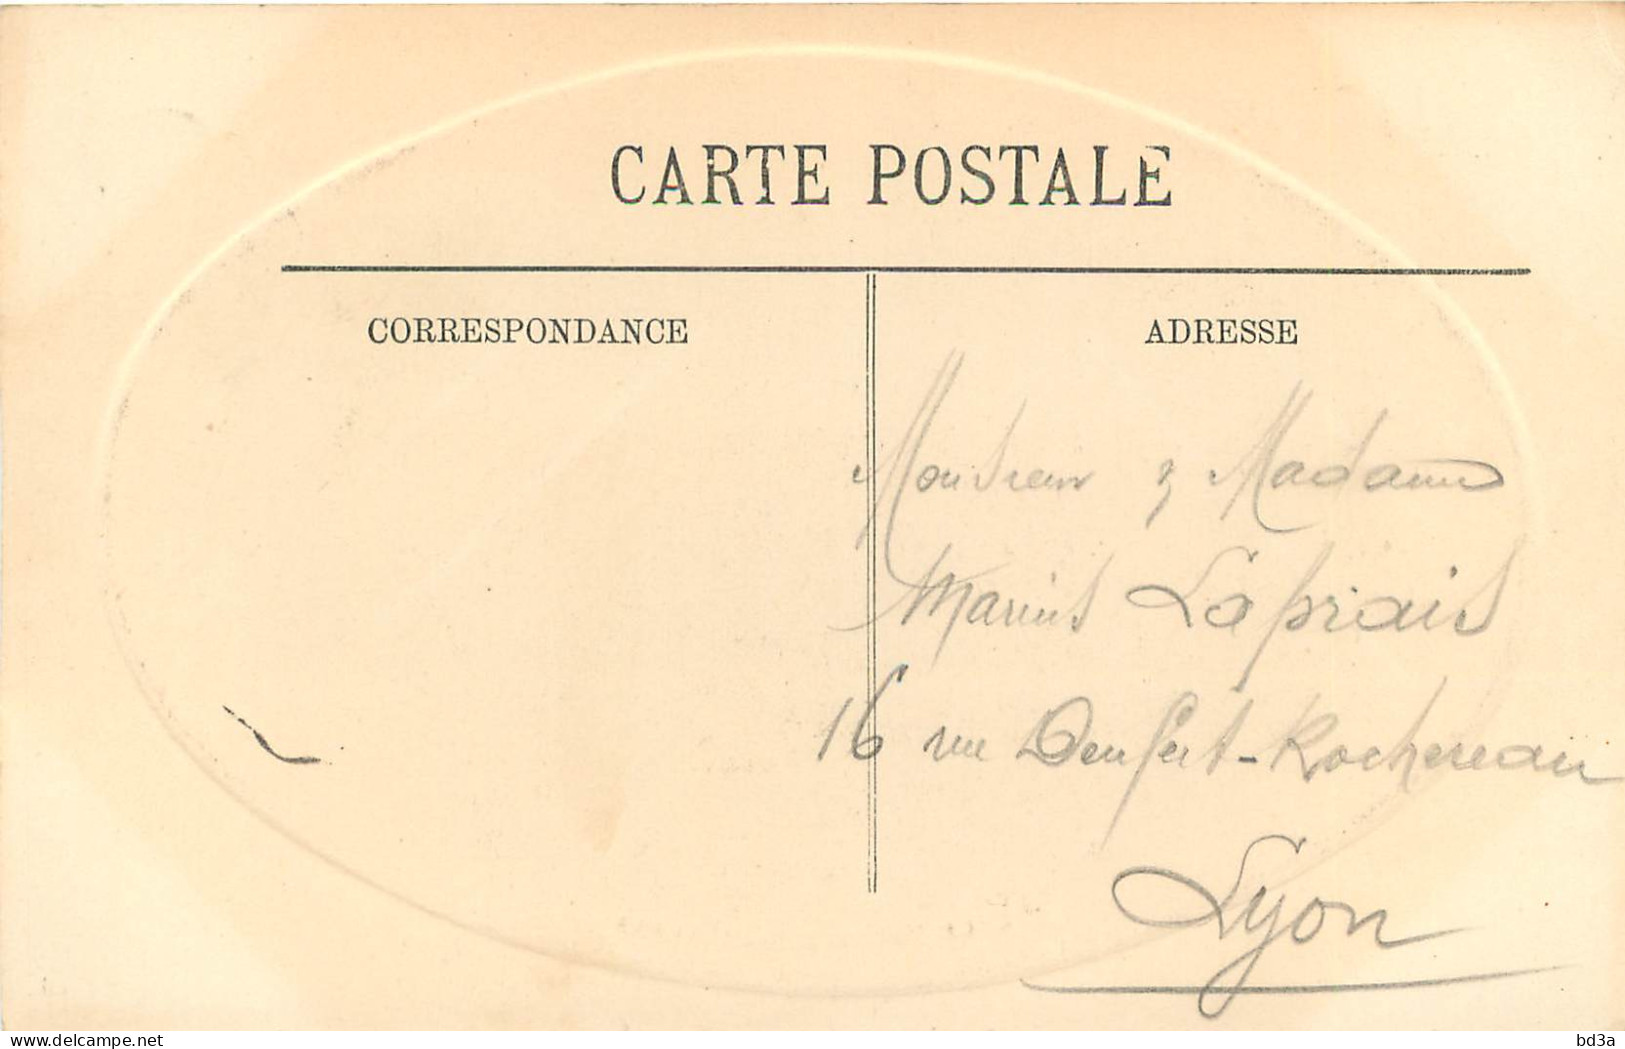 CARTE POSTALE
CORRESPONDANCE
ADRESSE
Monsieur & Madame
Marius Laprais
16 rue Denfert-Rochereau
Lyon
delcampe.net
bd3a